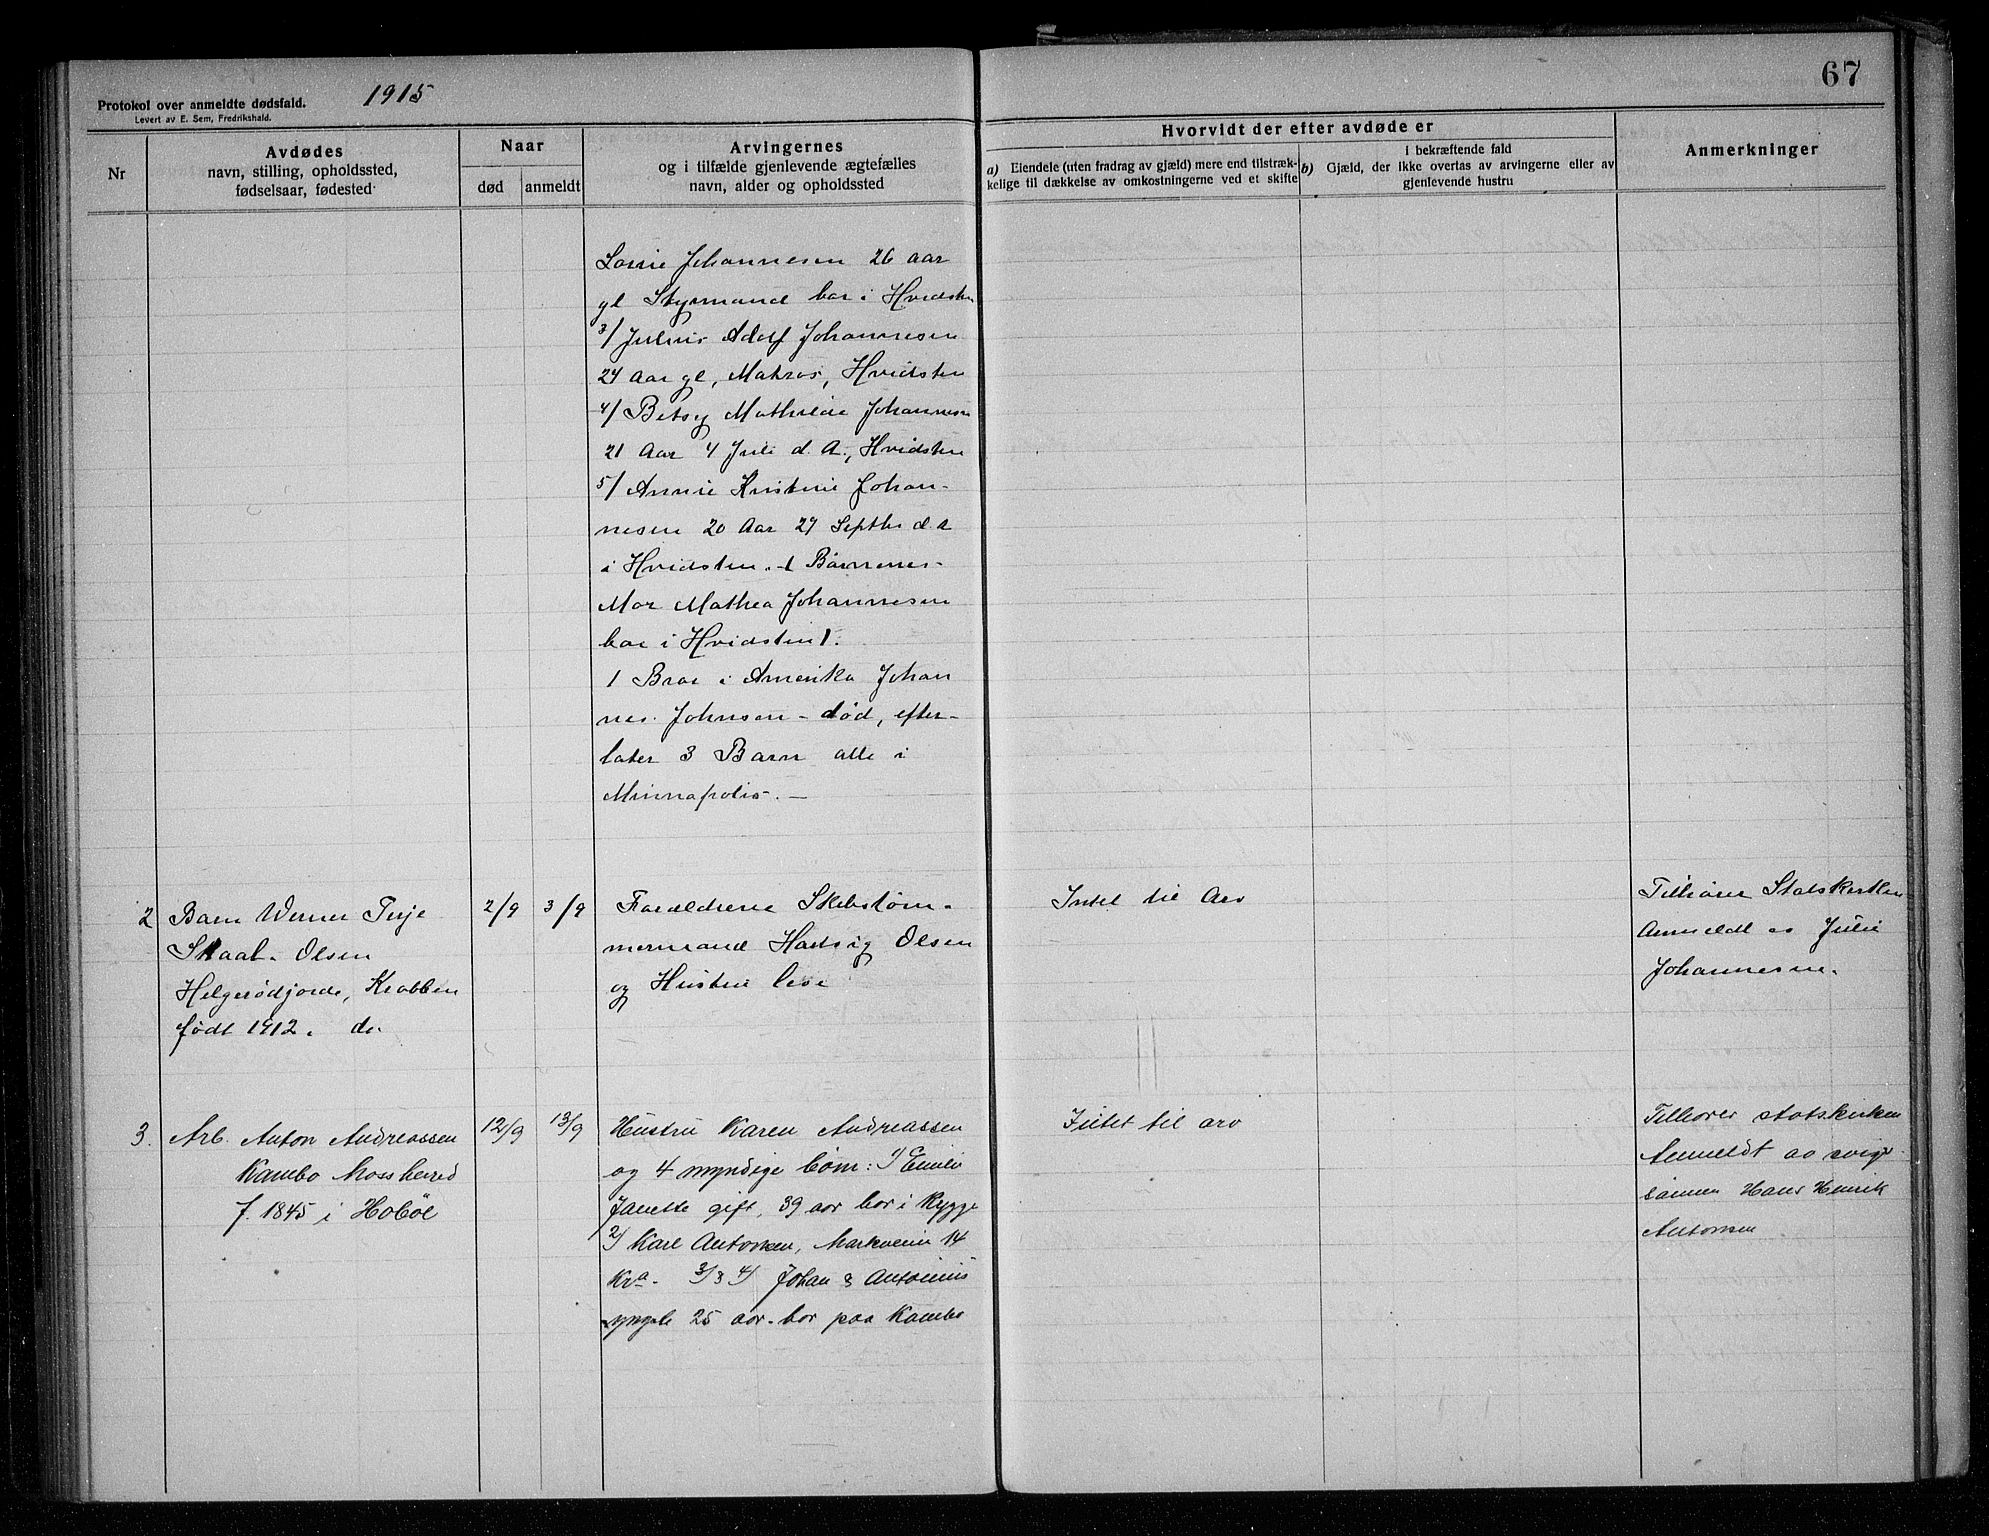 1915
67
Protokol over anmeldte dødsfald.
Levert av E. Sem, Fredrikshald.
Nr
Avdødes
navn, stilling, opholdssted,
fødselsaar, fødested
Naar
død
anmeldt
Arvingernes
og i tilfælde gjenlevende ægtefælles
navn, alder og opholdssted
Hvorvidt der efter avdøde er
a) Eiendele (uten fradrag av gjæld) mere end tilstræk-
kelige til dækkelse av omkostningerne ved et skifte
i bekræftende fald
b) Gjæld, der ikke overtas av arvingerne eller av
gjenlevende hustru
Anmerkninger
Johannesen 26 aar
gl Styrmand bor i Hvidsten
3/ Julius Adolf Johannesen
24 Aar gl, Matros, Hvidsten
4/ Betsy Mathilde Johannesen
21 Aar 4 Juli d. A., Hvidsten
5/ Annie Kristine Johan-
nesen 20 Aar 27 Septbr d. a
i Hvidsten. Børnenes
Mor Mathea Johannesen
bor i Hvidsten).
1 Bror i Amerika Johan
nes Johnsen - død, efter-
later 3 Barn alle i
Minnapolis. —
2
Barn Werner Terje
Skaal-Olsen
Helgerødjorde, Krabben
født 1912. do
2/9
3/9
Forældrene Skibstøm-
mermand Hartvig Olsen
og Hustru leve
Intet til Arv
Tilhører Statskirken
Anmeldt av Julie
Johannesen.
3.
Arb. Anton Andreassen
Kambo Moss herred
f. 1845 i Hobøl
12/9
13/9
Hustru Karen Andreassen
og 4 myndige børn: 1) Emilie
Janette gift, 39 aar bor i Rygge
2) Karl Antonsen, Markveien 14
Kra. 3/ & 4/ Johan & Antonius
yngste 25 aar. bor paa Kambo
Intet til arv
Tilhører statskirken
Anmeldt av svige
sønnen Hans Henrik
Antonsen